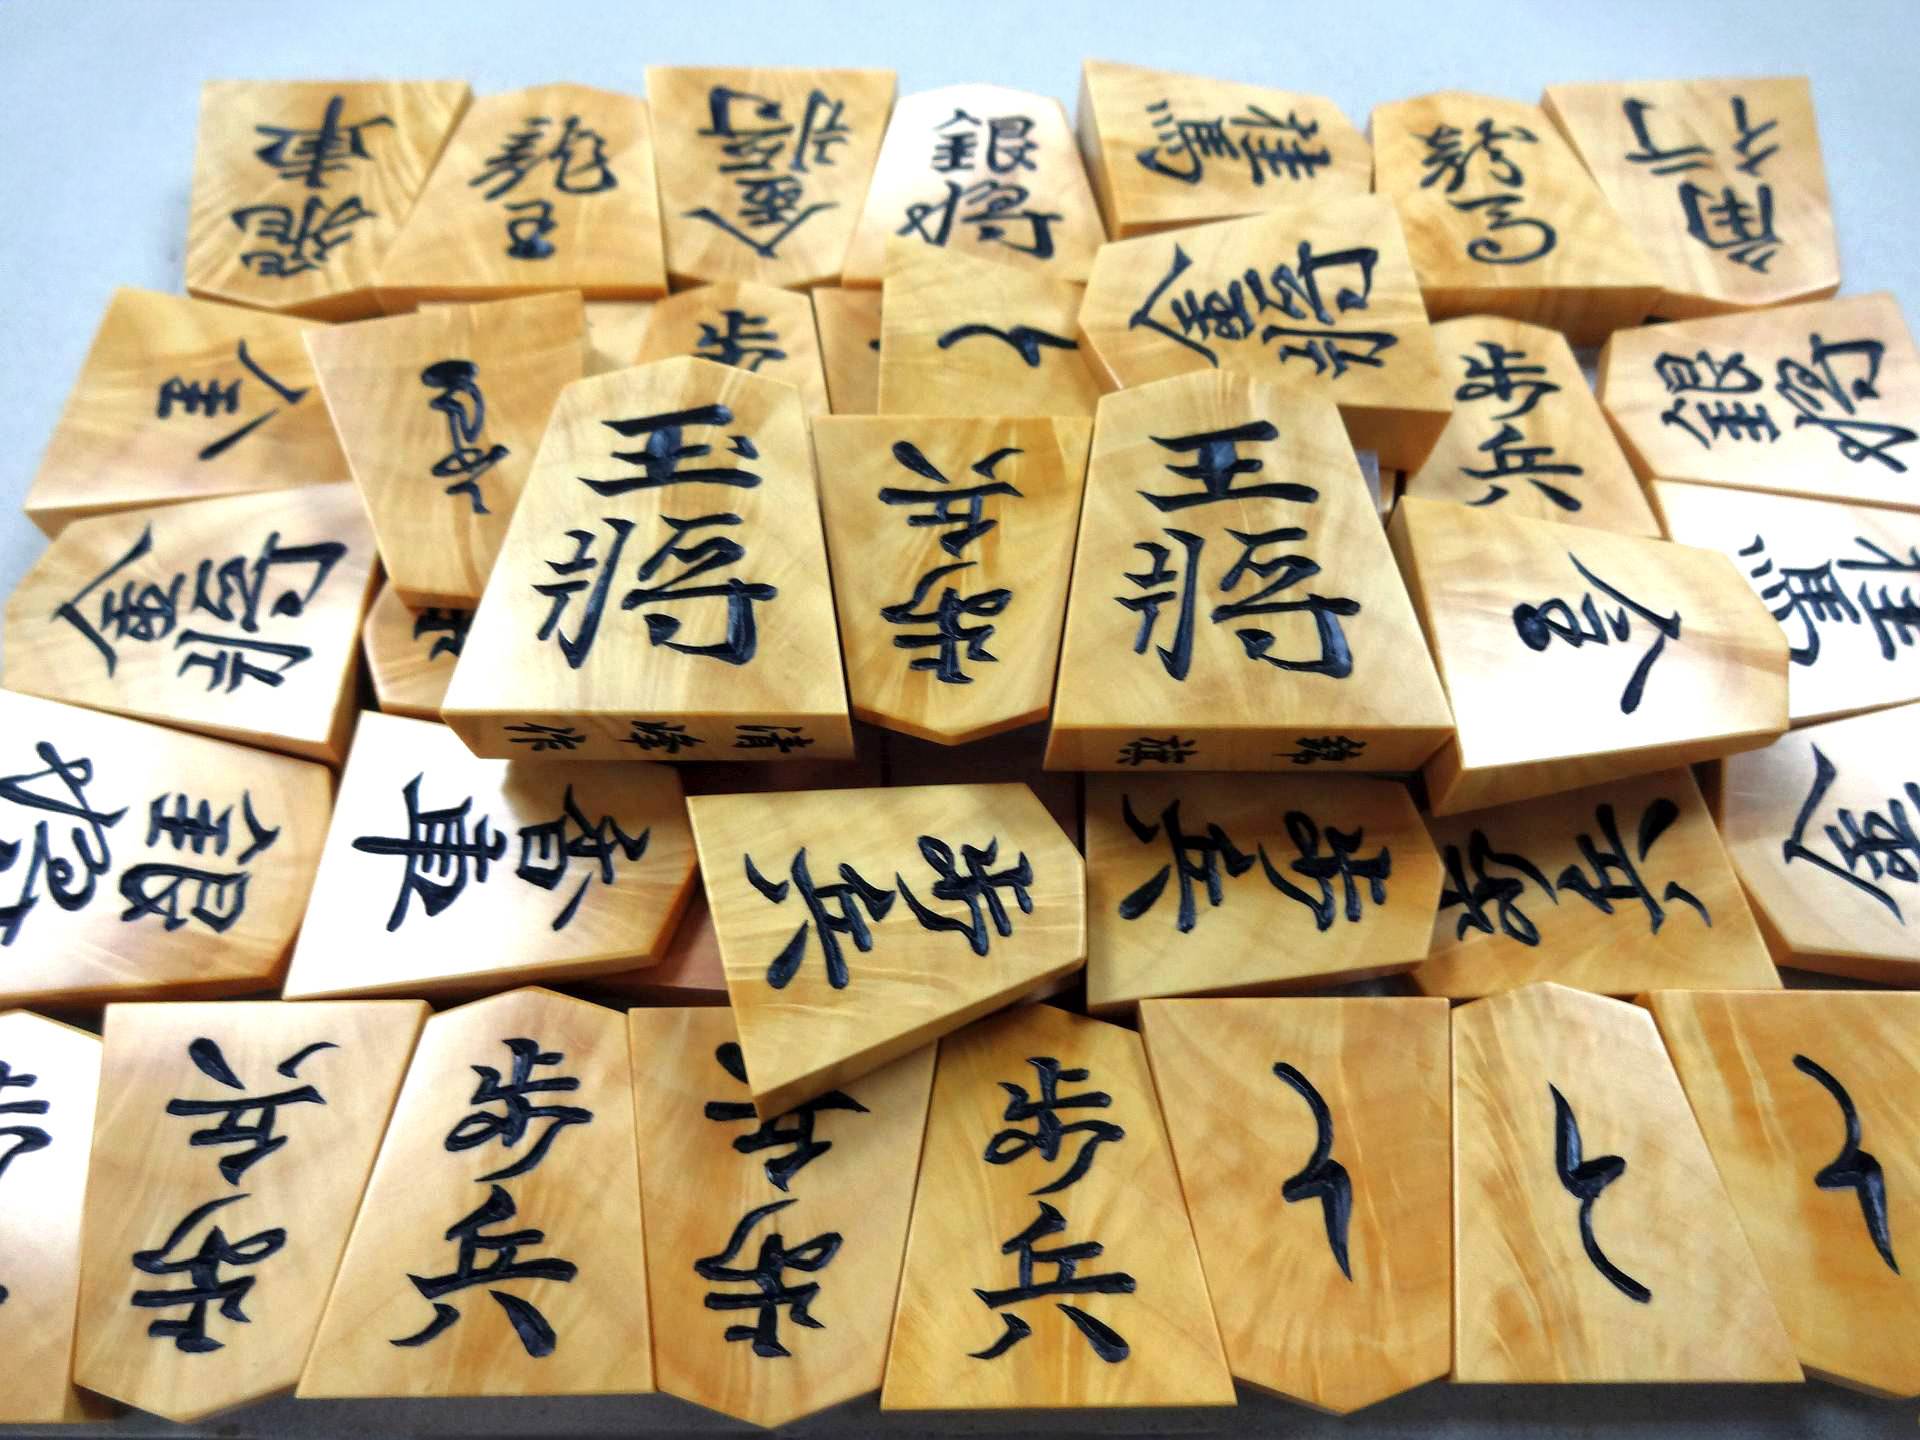 飛車
龍王
金将
銀将
桂馬
龍馬
角行
金将
全
歩
と
歩兵
銀将
王将
歩兵
王将
金将
桂馬
清峰作
錦旗
銀将
香車
歩兵
歩兵
歩兵
金
歩
歩兵
歩兵
歩兵
歩兵
と
と
と